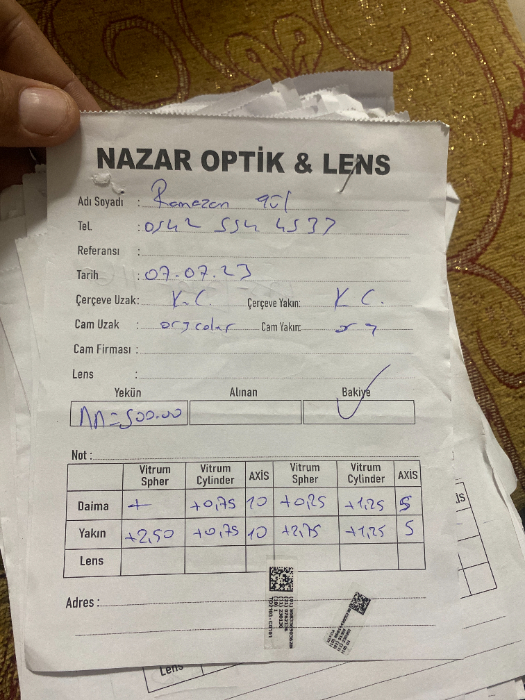 NAZAR OPTİK & LENS
Adı Soyadı : Ramazan gül
Tel. : 0542 554 4537
Referansı :
Tarih : 07.07.23
Çerçeve Uzak : K.C. Çerçeve Yakın: K C.
Cam Uzak : orgcolor Cam Yakın: org
Cam Firması :
Lens :
Yekün Alınan Bakiye
=500.00
Not :
Vitrum Spher Vitrum Cylinder AXİS Vitrum Spher Vitrum Cylinder AXİS
Daima + +0,75 10 +0,25 +1,25 5
Yakın +2,50 +0,75 10 +2,75 +1,25 5
Lens
Adres :
Lens